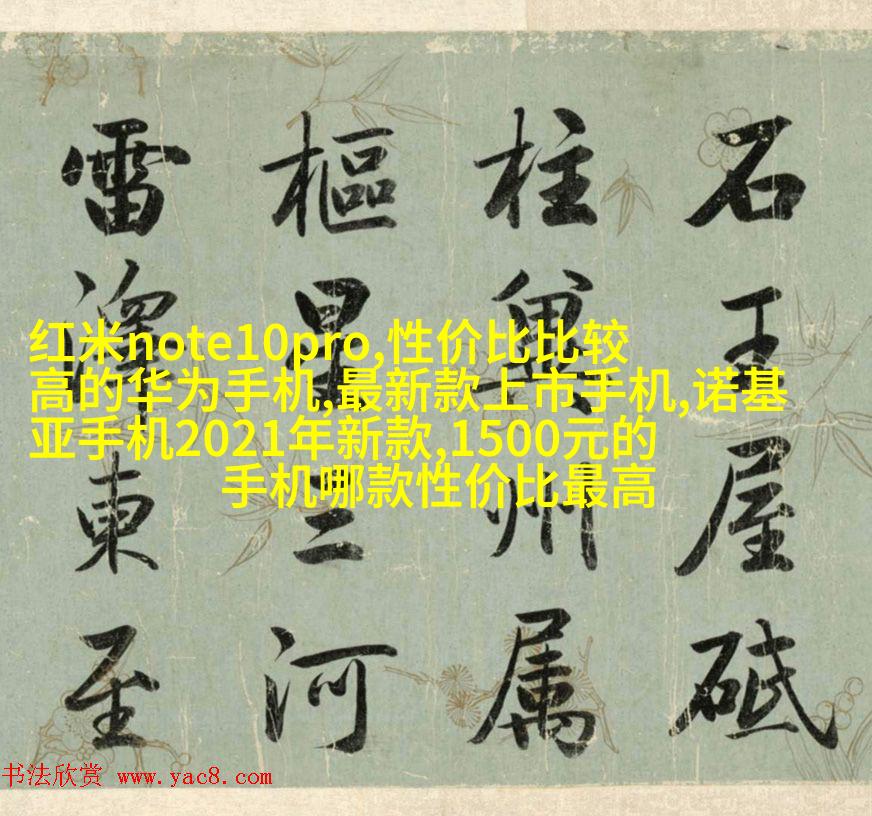 石王屋砥
柱冀州属
樞星三河
雷澤東至
红米note10pro,性价比比较
高的华为手机,最新款上市手机,诺基
亚手机2021年新款,1500元的
手机哪款性价比最高
书法欣赏 www.yac8.com